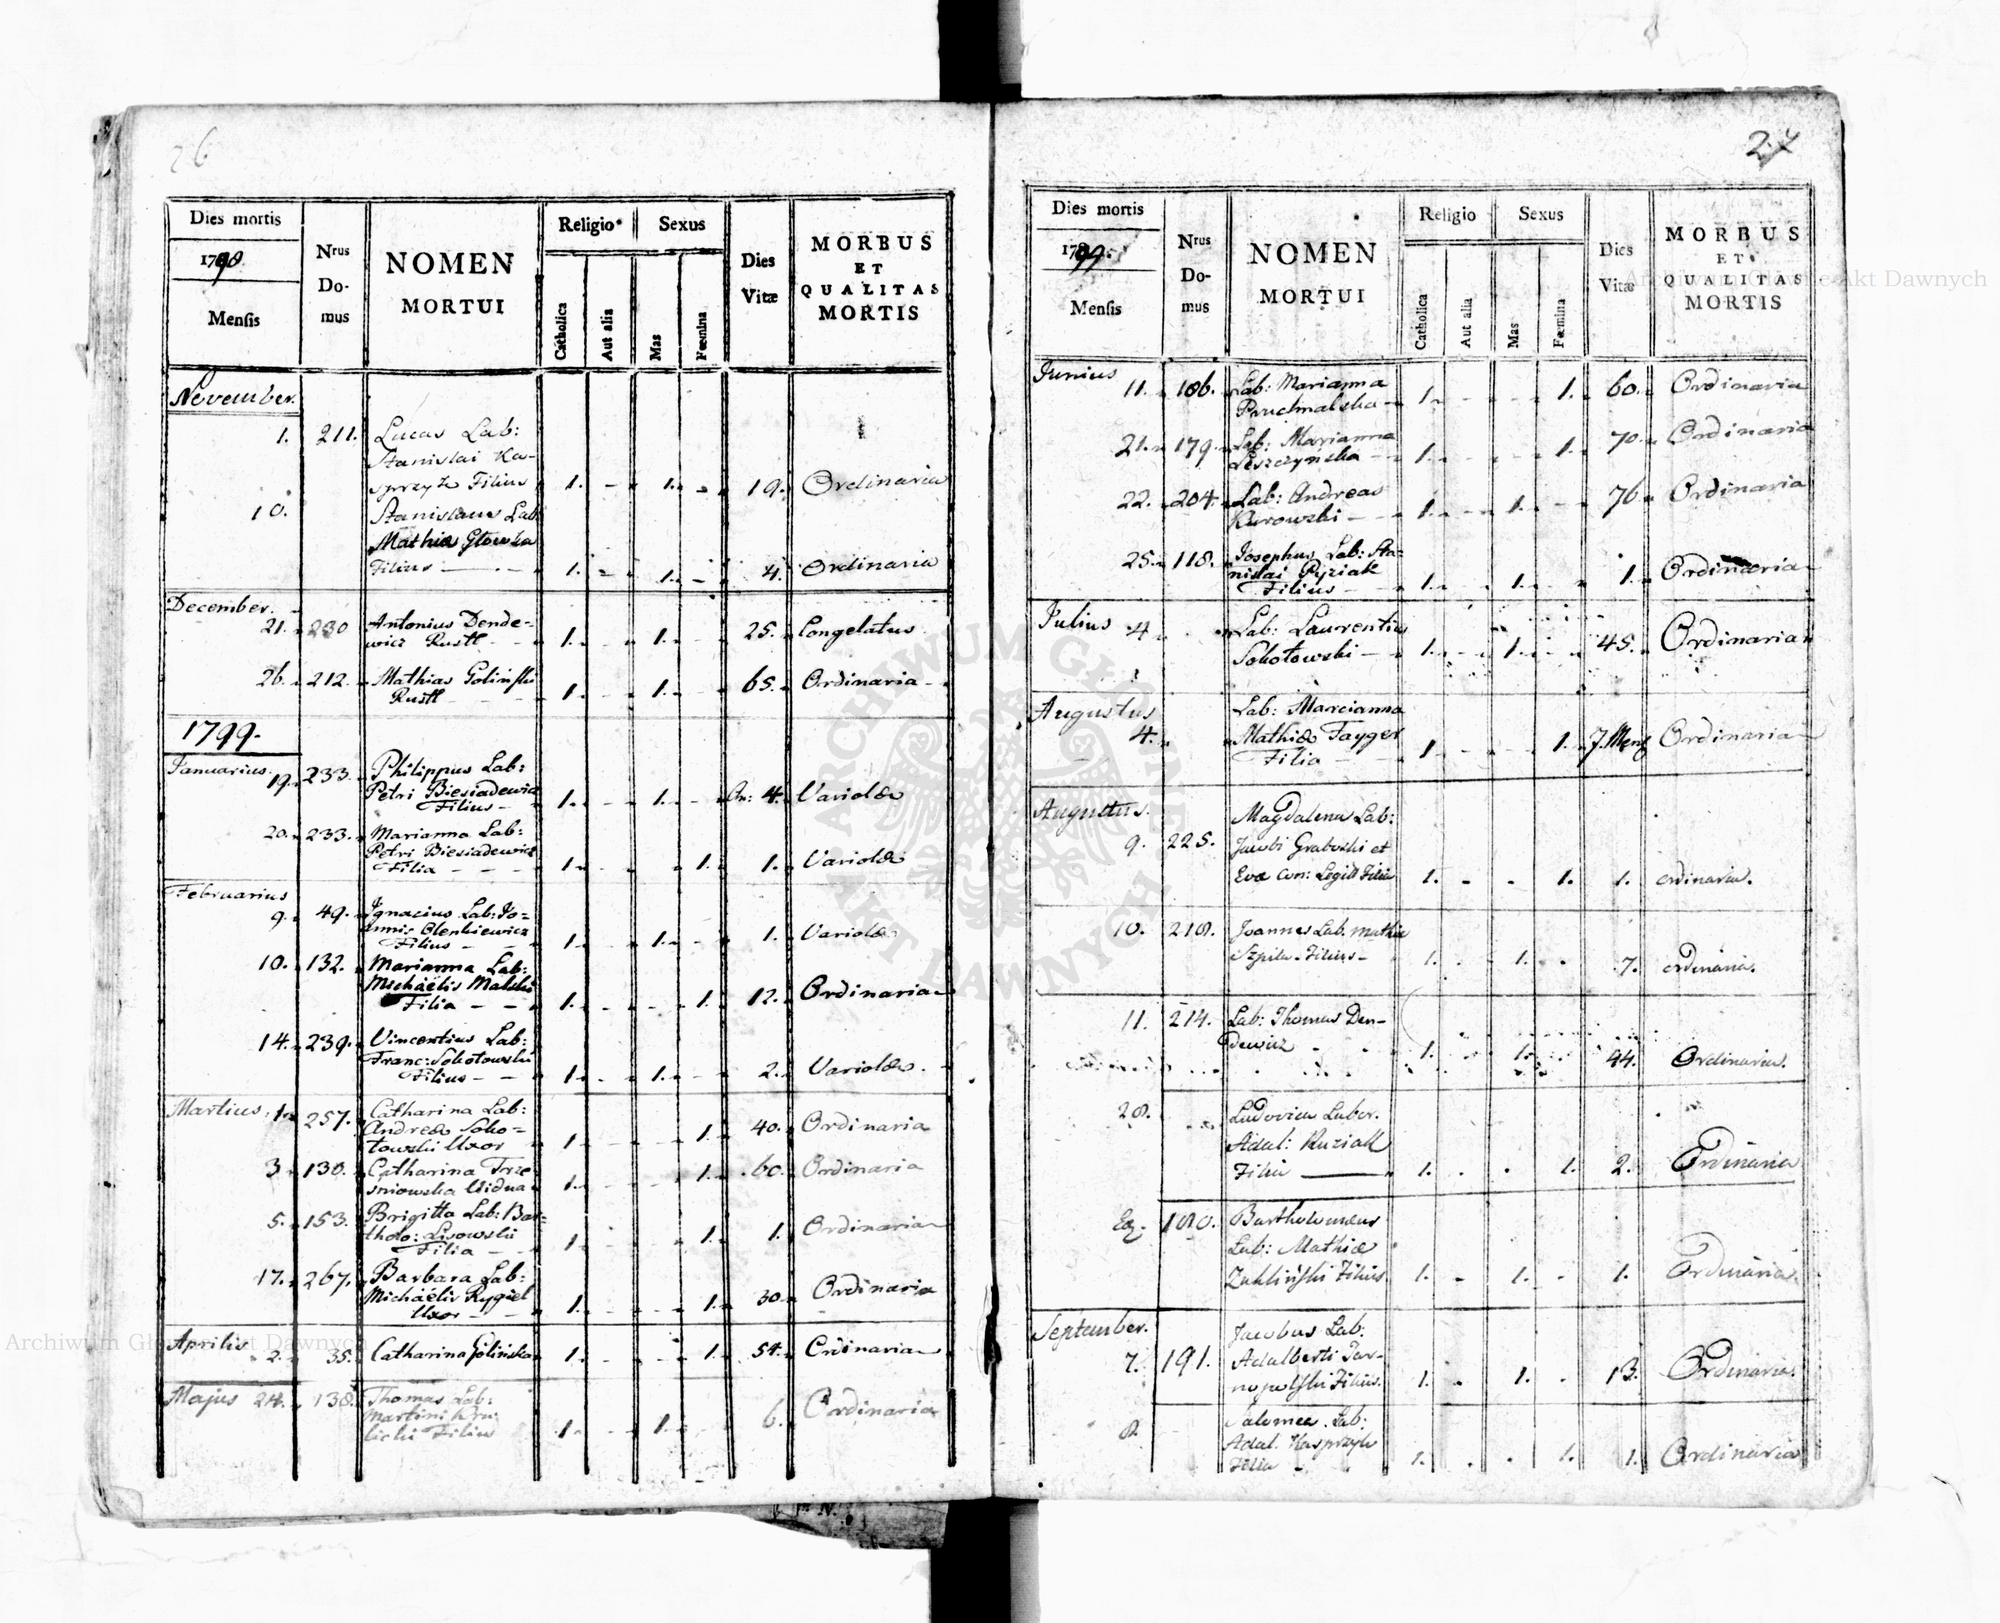 26
Dies mortis
1798.
Mensis
Nrus
Do-
mus
NOMEN
MORTUI
Religio
Catholica
Aut alia
Sexus
Mas
Fœmina
Dies
Vitæ
MORBUS
ET
QUALITAS
MORTIS
November.
1. 211. Lucas Lab:
Stanislai Ka-
sprzyk Filius 1. - 1. - 19. Ordinaria
10. Stanislaus Lab
Mathiæ Głowka
Filius 1. - 1. - 4. Ordinaria
December.
21. 230 Antonius Dende-
wicz Rustt 1. 1. 25. Congelatus
26. 212 Mathias Golinski
Rustt 1. 1. 65. Ordinaria
1799.
Januarius.
19. 233. Philippus Lab:
Petri Biesiadewicz
Filius 1. 1. An: 4. Variolæ
20. 233. Marianna Lab:
Petri Biesiadewicz
Filia 1. 1. 1. Variolæ
Februarius
9. 49. Ignacius Lab: Jo-
annis Olenkiewicz
Filius 1. 1. 1. Variolæ
10. 132. Marianna Lab:
Michaëlis Malski
Filia 1. 1. 12. Ordinaria
14. 239. Vincentius Lab:
Franc: Sokołowski
Filius 1. 1. 2. Variolæ.
Martius. 1. 257. Catharina Lab:
Andreæ Soko-
łowski Uxor 1. 1. 40. Ordinaria
3 130. Catharina Trze-
sniowska Vidua 1. 1. 60. Ordinaria
5. 153. Brigitta Lab: Bar-
tholo: Lisowski
Filia 1. 1. 1. Ordinaria
17. 267. Barbara Lab:
Michaëlis Rygiel
Uxor 1. 1. 30. Ordinaria
Aprilis
2. 35. Catharina Golińska 1. 1. 54. Ordinaria
Majus 24. 138. Thomas Lab:
Martini Kru-
licki Filius 1. 1. 6. Ordinaria
27
Dies mortis
1799.
Mensis
Nrus
Do-
mus
NOMEN
MORTUI
Religio
Catholica
Aut alia
Sexus
Mas
Fœmina
Dies
Vitæ
MORBUS
ET
QUALITAS
MORTIS
Junius
11. 186. Lab: Marianna
1. 1. 60. Ordinaria
21. 179. Lab: Marianna
Leszczyńska 1. 1. 70. Ordinaria
22. 204. Lab: Andreas
Kurowski 1. 1. 76. Ordinaria
25. 118. Josephus Lab: Sta-
nislai Pyziak
Filius 1. 1. 1. Ordinaria
Julius
4 Lab: Laurentius
Sokołowski 1. 1. 45. Ordinaria
Augustus
4. Lab: Marcianna
Mathiæ Fayger
Filia 1. 1. 7. Mens Ordinaria
Augustus.
9. 225. Magdalena Lab:
Jacobi Graboski et
Evæ con: Legitt Filia 1. - . 1. 1. ordinaria.
10. 218. Joannes Lab. Mathiæ
Szpila Filius 1. 1. 7. ordinaria.
11. 214. Lab: Thomas Den-
dewicz 1. 1. 44. Ordinarius.
28. Ludovica Labor.
Adal: Ruziak
Filia 1. 1. 2. Ordinaria
180. Bartholomæus
Lab: Mathiæ
Zakliński Filius. 1. - 1. - 1. Ordinaria.
September.
7. 191. Jacobus Lab:
Adalberti Tar-
nopolski Filius. 1. 1. 13. Ordinaria.
8. Salomea Lab:
Adal. Kasprzyk
Filia 1. 1. 1. Ordinaria
ARCHIWUM GŁÓWNE AKT DAWNYCH
Archiwum Główne Akt Dawnych
Archiwum Główne Akt Dawnych